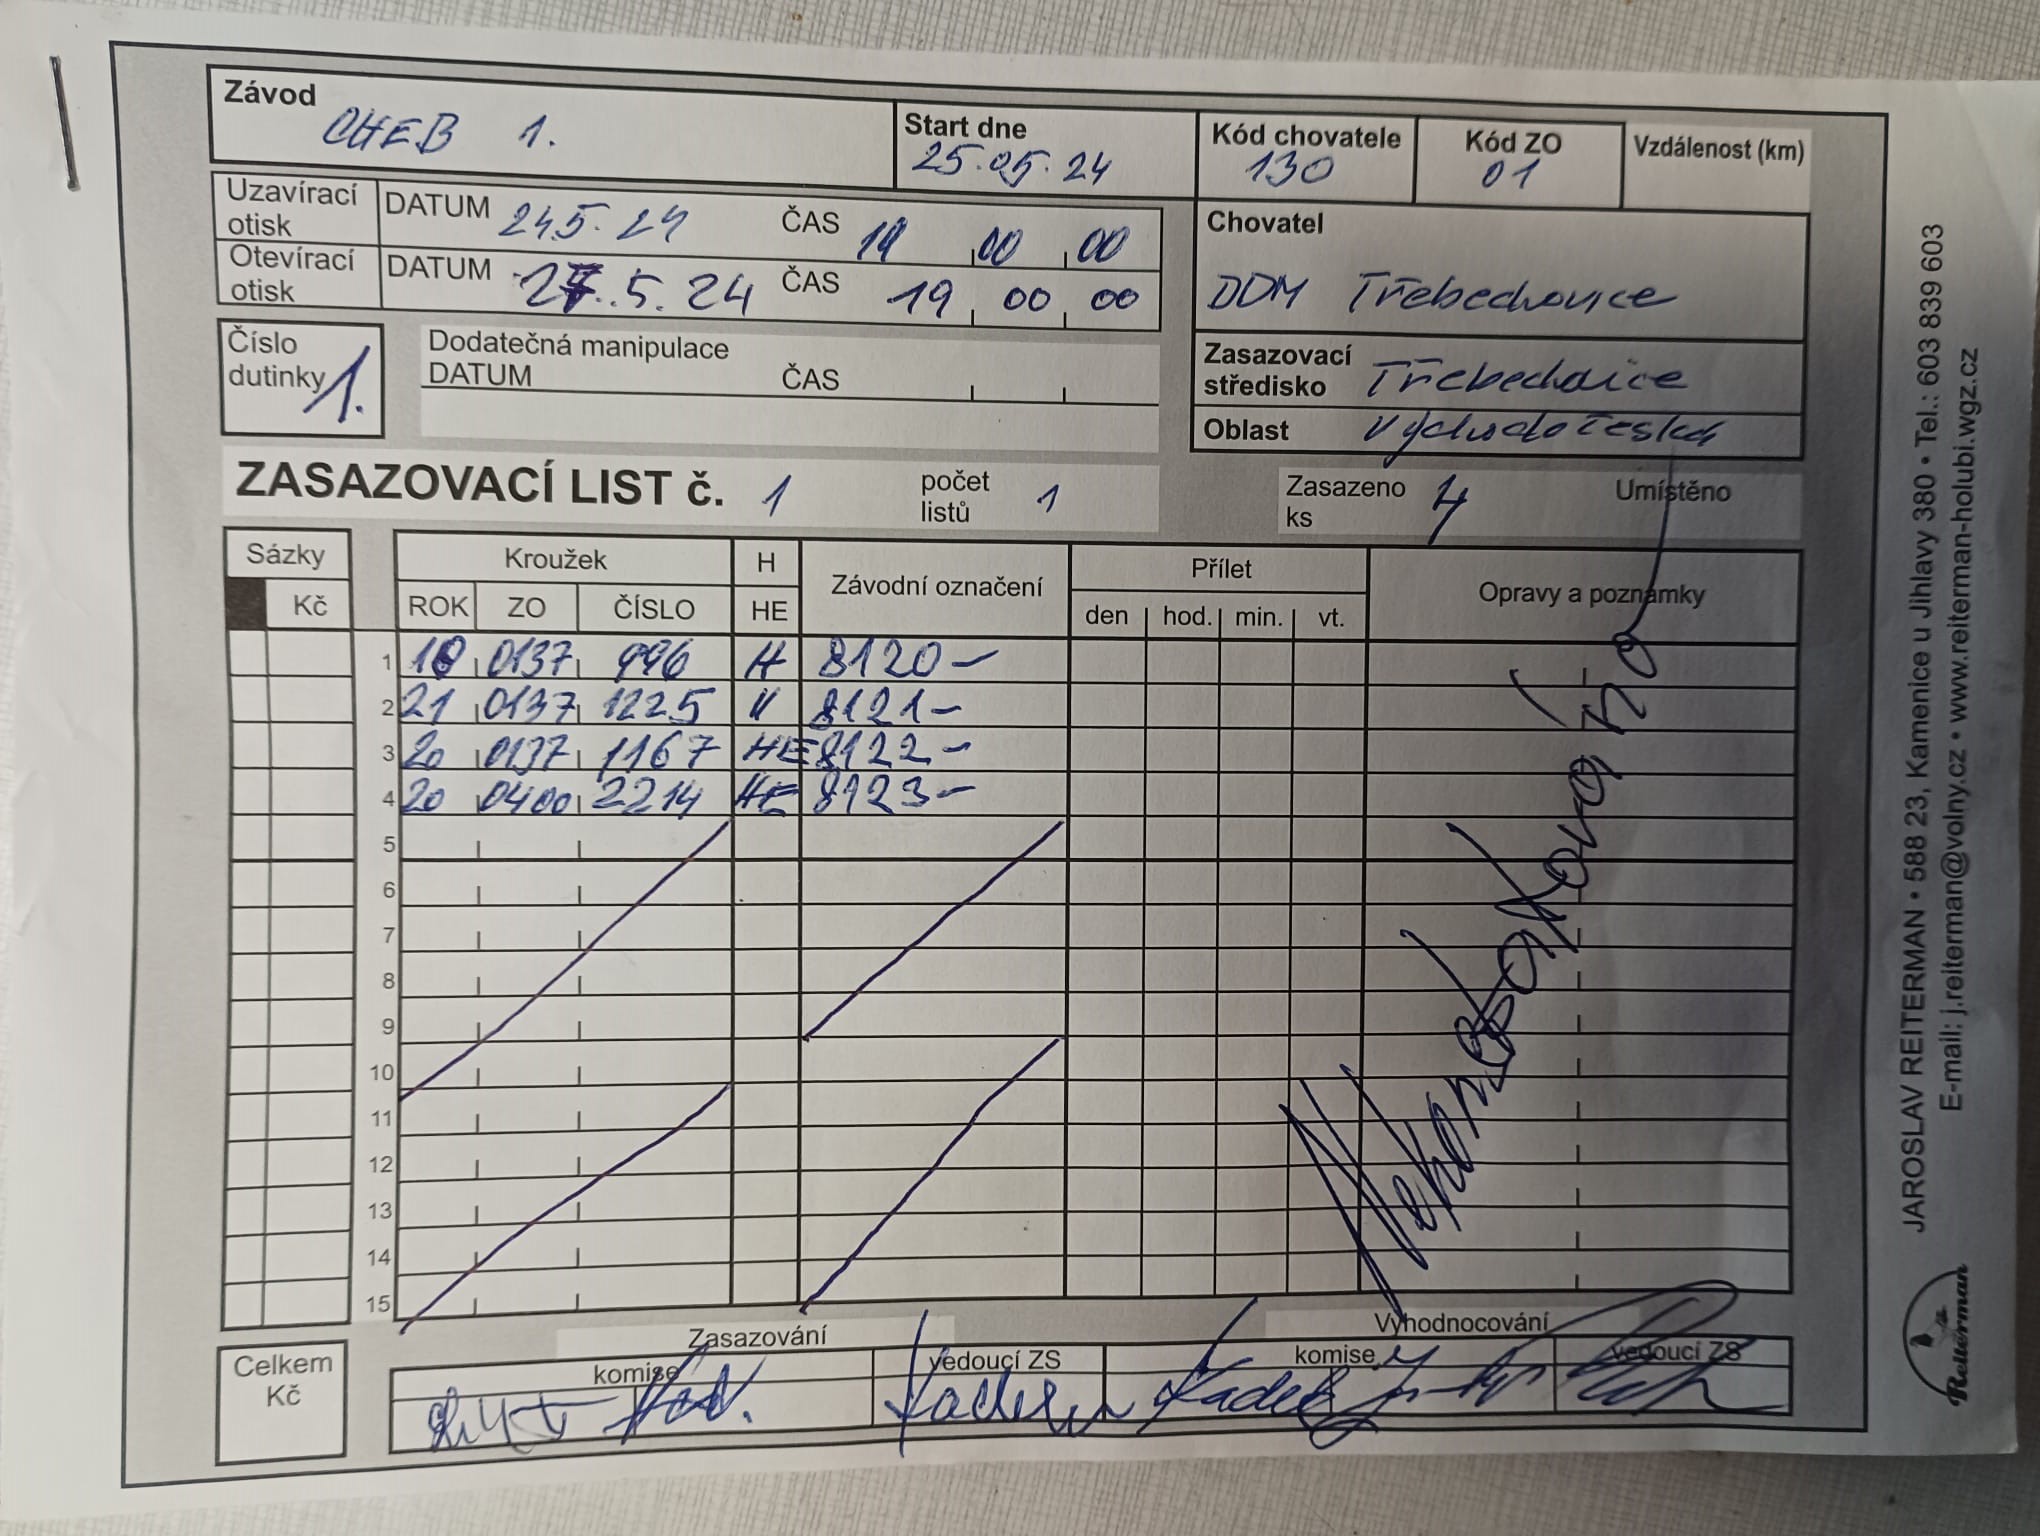 Závod
CHEB 1.
Start dne
25.05.24
Kód chovatele
130
Kód ZO
01
Vzdálenost (km)
Uzavírací otisk DATUM 24.5.24 ČAS 14 00 00
Otevírací otisk DATUM 5.24 ČAS 19 00 00
Chovatel
DDM Třebechovice
Číslo dutinky 1.
Dodatečná manipulace
DATUM ČAS
Zasazovací středisko Třebechovice
Oblast Východočeská
ZASAZOVACÍ LIST č. 1 počet listů 1 Zasazeno ks 4 Umístěno
Sázky
Kč
Kroužek H Závodní označení Přílet Opravy a poznámky
ROK ZO ČÍSLO HE den hod. min. vt.
1 0137 996 H 8120-
2 21 0137 1225 H 8121-
3 20 0137 1167 HE 8122-
4 20 0400 2214 HE 8123-
5
6
7
8
9
10
11
12
13
14
15
Celkem Kč
Zasazování Vyhodnocování
komise vedoucí ZS komise vedoucí ZS
JAROSLAV REITERMAN • 588 23, Kamenice u Jihlavy 380 • Tel.: 603 839 603
E-mail: j.reiterman@volny.cz • www.reiterman-holubi.wgz.cz
Reiterman